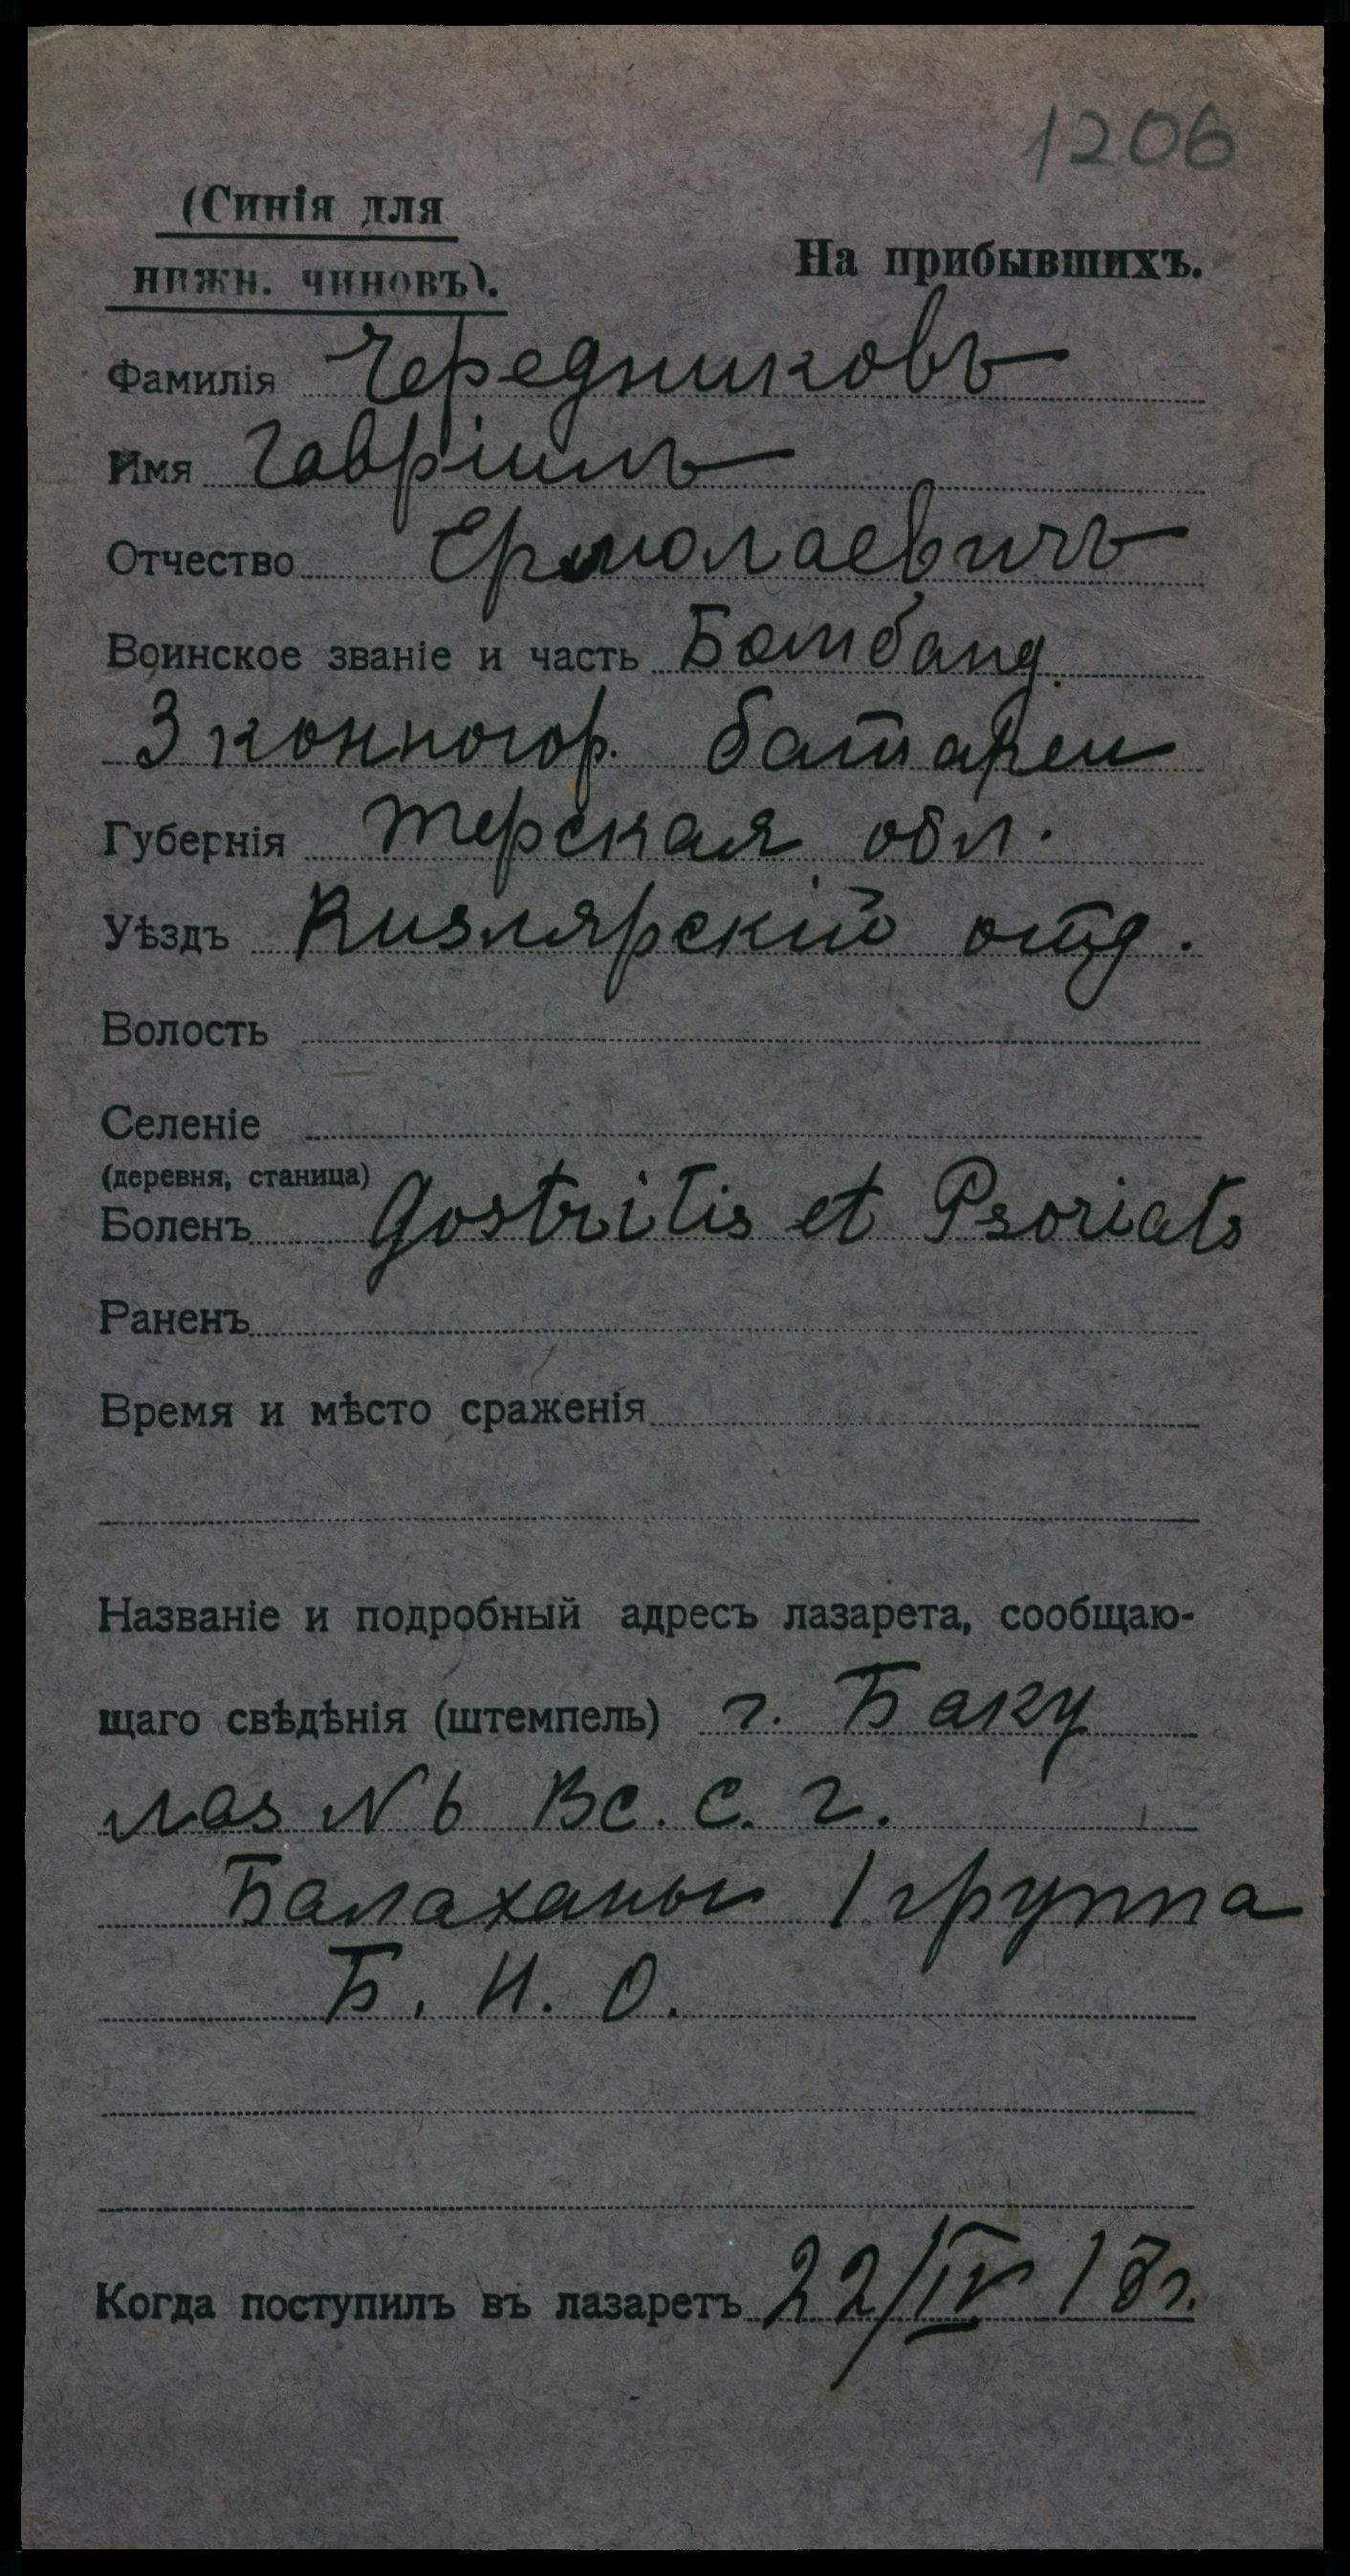 1206
(Синія для
нижн. чиновъ).
На прибывшихъ.
Фамилія Чередниковъ
Имя Гавріилъ
Отчество Ермолаевичъ
Воинское званіе и часть Бомбанд.
3 конногор. батареи
Губернія Терская обл.
Уѣздъ Кизлярскій отд.
Волость
Селеніе
(деревня, станица)
Боленъ Gostritis et Psoriats
Раненъ
Время и мѣсто сраженія
Названіе и подробный адресъ лазарета, сообщаю-
щаго свѣдѣнія (штемпель) г. Баку
лаз N 6 Вс. С. г.
Балаханы 1 группа
Б. Н. О.
Когда поступилъ въ лазаретъ 22/IV 18г.